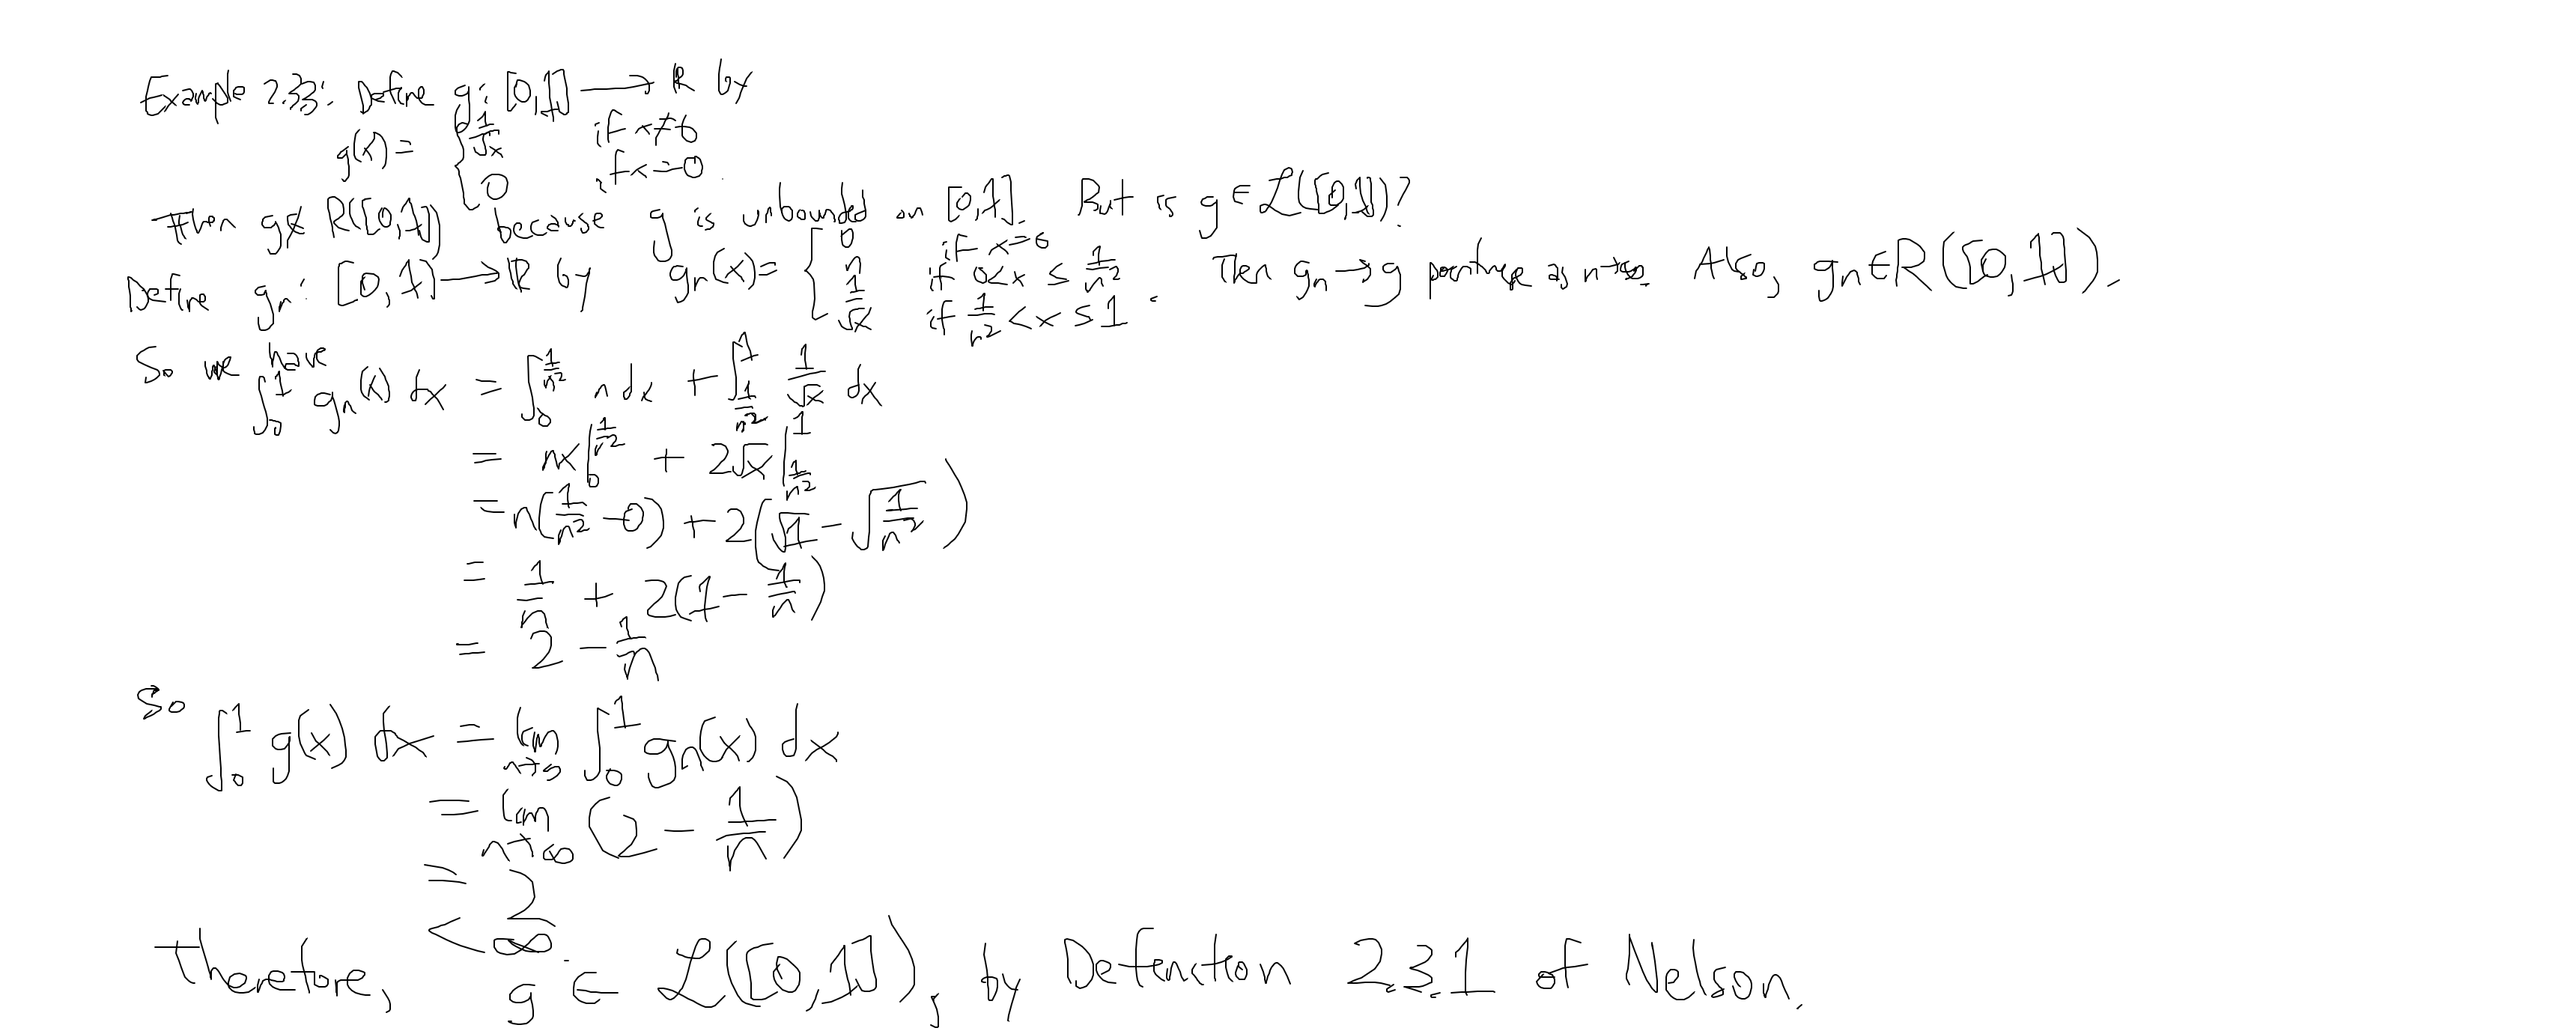 Example 2.3.3: Define g: [0,1] → ℝ by
g(x) = { 1/√x if x≠0
0 if x=0.
Then g∉ R([0,1]) because g is unbounded on [0,1]. But is g ∈ ℒ([0,1])?
Define gₙ: [0,1] → ℝ by gₙ(x) = { 0 if x=0
n if 0<x ≤ 1/n²
1/√x if 1/n² < x ≤ 1. Then gₙ → g pointwise as n→∞. Also, gₙ ∈ R([0,1]).
So we have
∫₀¹ gₙ(x) dx = ∫₀^{1/n²} n dx + ∫_{1/n²}^1 1/√x dx
= nx|₀^{1/n²} + 2√x|_{1/n²}^1
= n(1/n² - 0) + 2(√1 - √(1/n²))
= 1/n + 2(1 - 1/n)
= 2 - 1/n
So
∫₀¹ g(x) dx = lim_{n→∞} ∫₀¹ gₙ(x) dx
= lim_{n→∞} (2 - 1/n)
= 2
< ∞.
Therefore, g ∈ ℒ([0,1]), by Definition 2.3.1 of Nelson.